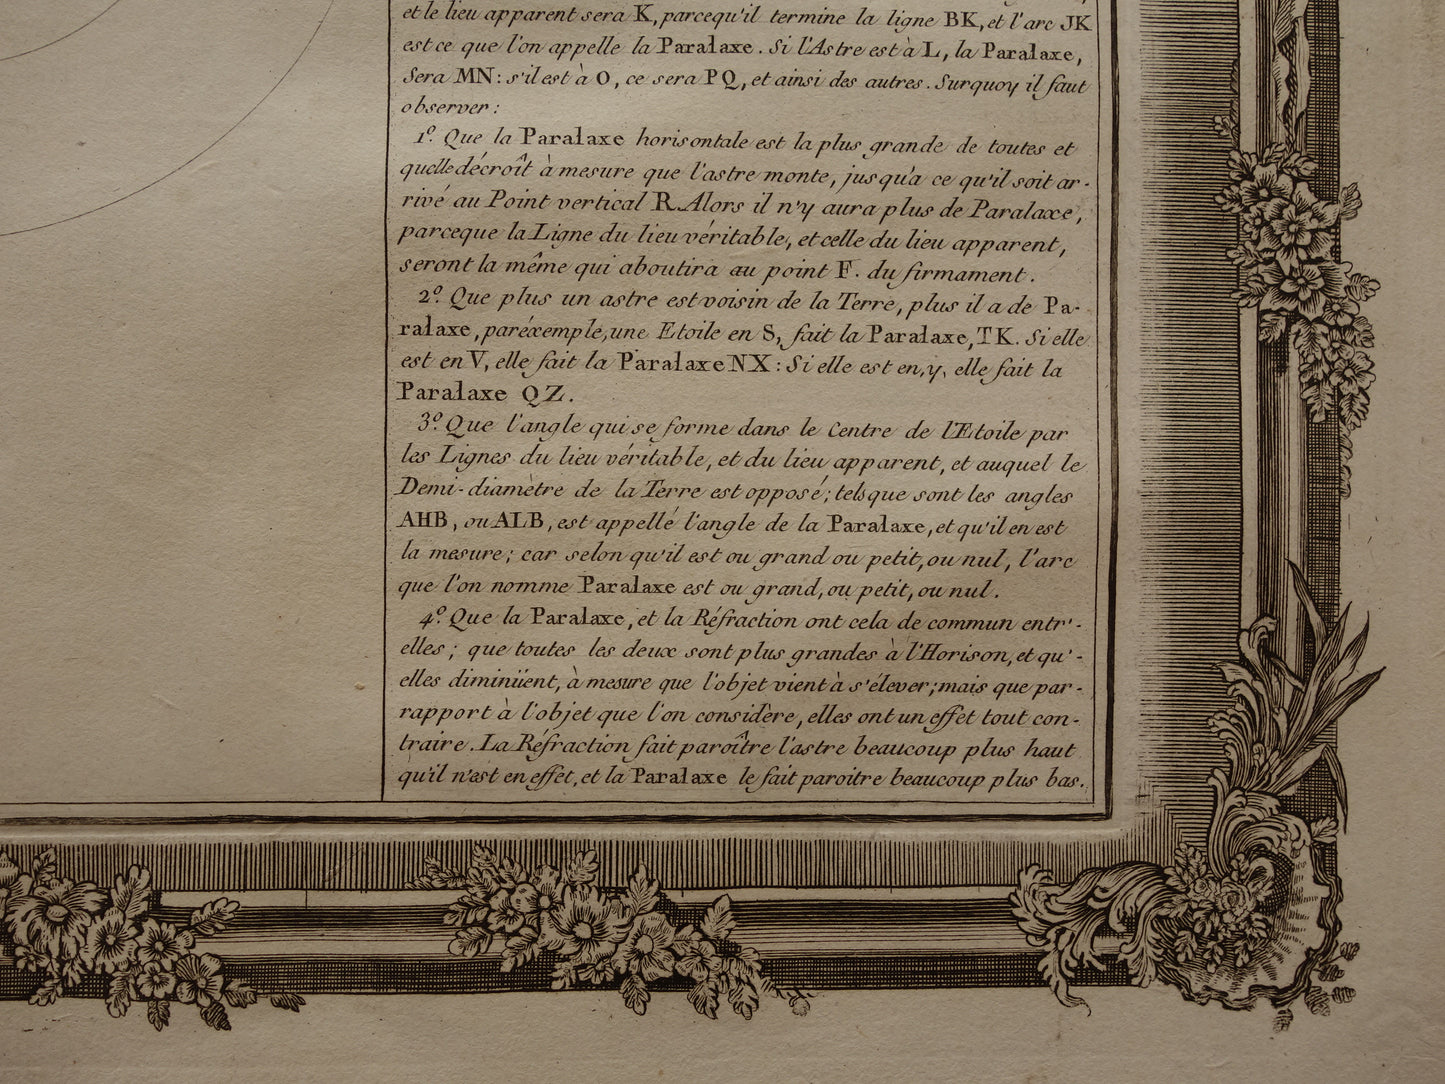 et le lieu apparent sera K, parcequ'il termine la ligne BK, et l'arc JK
est ce que l'on appelle la Paralaxe. Si l'Astre est à L, la Paralaxe,
Sera MN: s'il est à O, ce sera PQ, et ainsi des autres. Surquoy il faut
observer:
1º. Que la Paralaxe horisontale est la plus grande de toutes et
quelle décroît à mesure que l'astre monte, jusqu'a ce qu'il soit ar-
rivé au Point vertical R. Alors il n'y aura plus de Paralaxe,
parceque la Ligne du lieu véritable, et celle du lieu apparent,
seront la même qui aboutira au point F. du firmament.
2º. Que plus un astre est voisin de la Terre, plus il a de Pa-
ralaxe, par éxemple, une Etoile en S, fait la Paralaxe, TK. Si elle
est en V, elle fait la Paralaxe NX: Si elle est en, y, elle fait la
Paralaxe QZ.
3º. Que l'angle qui se forme dans le Centre de l'Etoile par
les Lignes du lieu véritable, et du lieu apparent, et auquel le
Demi-diamètre de la Terre est opposé; tels que sont les angles
AHB, ou ALB, est appellé l'angle de la Paralaxe, et qu'il en est
la mesure; car selon qu'il est ou grand ou petit, ou nul, l'arc
que l'on nomme Paralaxe est ou grand, ou petit, ou nul.
4º. Que la Paralaxe, et la Réfraction ont cela de commun entr'-
elles; que toutes les deux sont plus grandes à l'Horison, et qu'-
elles diminüent, à mesure que l'objet vient à s'élever; mais que par-
rapport à l'objet que l'on considère, elles ont un effet tout con-
traire. La Réfraction fait paroître l'astre beaucoup plus haut
qu'il n'est en effet, et la Paralaxe le fait paroitre beaucoup plus bas.